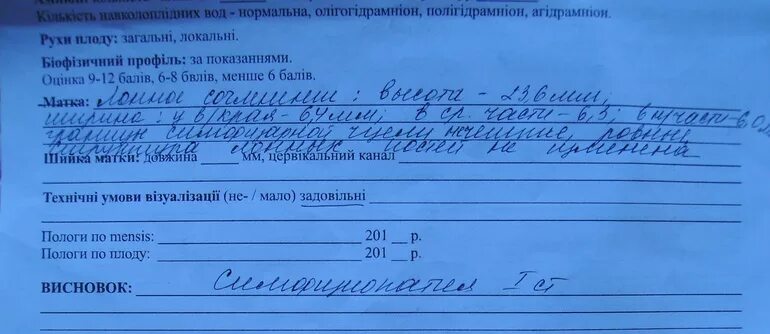 Кількість навколоплідних вод - нормальна, олігогідрамніон, полігідрамніон, агідрамніон.
Рухи плоду: загальні, локальні.
Біофізичний профіль: за показаннями.
Оцінка 9-12 балів, 6-8 бвлів, менше 6 балів.
Матка: Лонное сочленение: высота - 23,6 мм,
ширина: у в/края - 6,4 мм, в ср. части - 6,3; в н/части - 6,0
границы симфизарной щели четкие, ровные
Структура лонных костей не изменена
Шийка матки: довжина ____ мм, цервікальний канал
Технічні умови візуалізації (не- / мало) задовільні
Пологи по mensis: ____ 201 __ р.
Пологи по плоду: ____ 201 __ р.
ВИСНОВОК: Симфизиопатия I ст